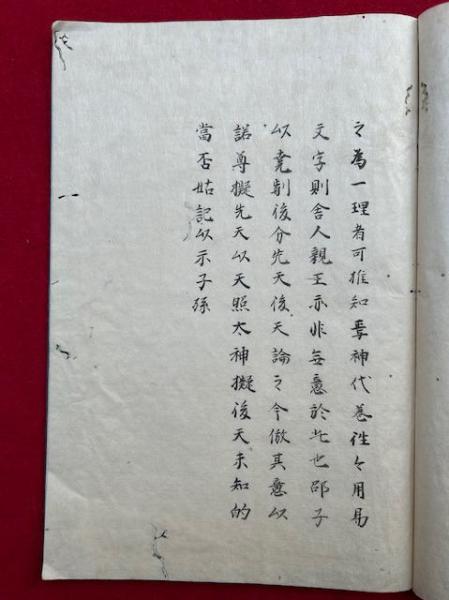 之為一理者可推知焉神代巻徃々用易
文字則舎人親王亦非無意於此也邵子
以堯前後分先天後天論之今倣其意以
諾尊擬先天以天照太神擬後天未知的
當否姑記以示子孫